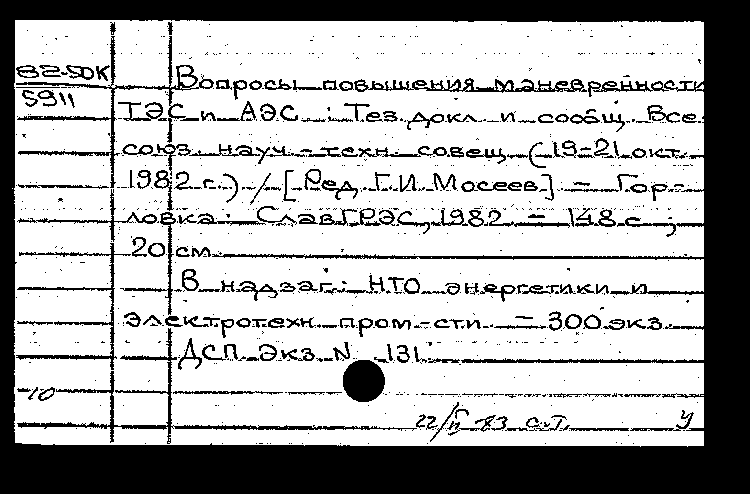 82-5ОК
5911
Вопросы повышения маневренности
ТЭС и АЭС : Тез. докл. и сообщ. Все-
союз. науч.-техн. совещ. (19-21 окт.
1982 г.) / [Ред. Г.И. Мосеев] - Гор-
ловка: СлавГРЭС, 1982 - 148 с ;
20 см
В надзаг.: НТО энергетики и
электротехн. пром-сти - 300 экз.
ДСП Экз. N 131
10
83 с.т. У